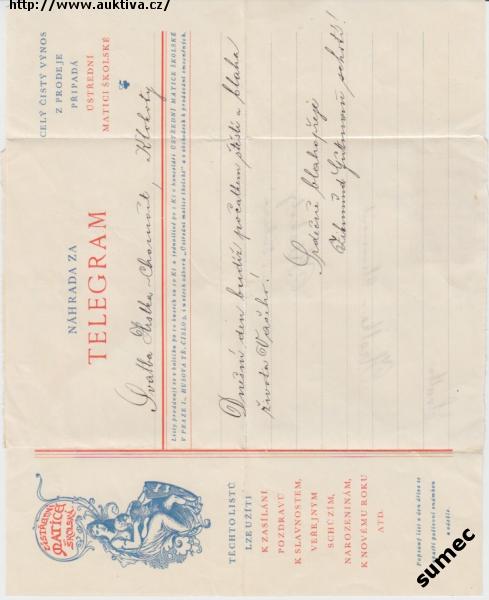 http://www.auktiva.cz/
ÚSTŘEDNÍ
MATICE
ŠKOLSKÁ
TĚCHTO LISTŮ
LZE UŽÍTI
K ZASÍLÁNÍ
POZDRAVŮ
K SLAVNOSTEM,
VEŘEJNÝM
SCHŮZÍM,
NAROZENINÁM,
K NOVÉMU ROKU
ATD.
Popsaný list v den držen se
opatří poštovní známkou
a odešle.
NÁHRADA ZA
TELEGRAM
CELÝ ČISTÝ VÝNOS
Z PRODEJE
PŘIPADÁ
ÚSTŘEDNÍ
MATICI ŠKOLSKÉ
Svatba Krska-Chomout, Klokoty
Listy prodávají se v balíčku po 10 kusech za 10 Kč a jednotlivě po 1 Kč v kanceláři ÚSTŘEDNÍ MATICE ŠKOLSKÉ
V PRAZE I., HUSOVA TŘ. ČÍSLO 5, u všech odborů „Ústřední matice školské“ a v obchodech k prodávání zmocněných.
Dnešní den budiž počátkem štěstí a blaha
života Vašeho!
Srdečně blahopřejí
sumec